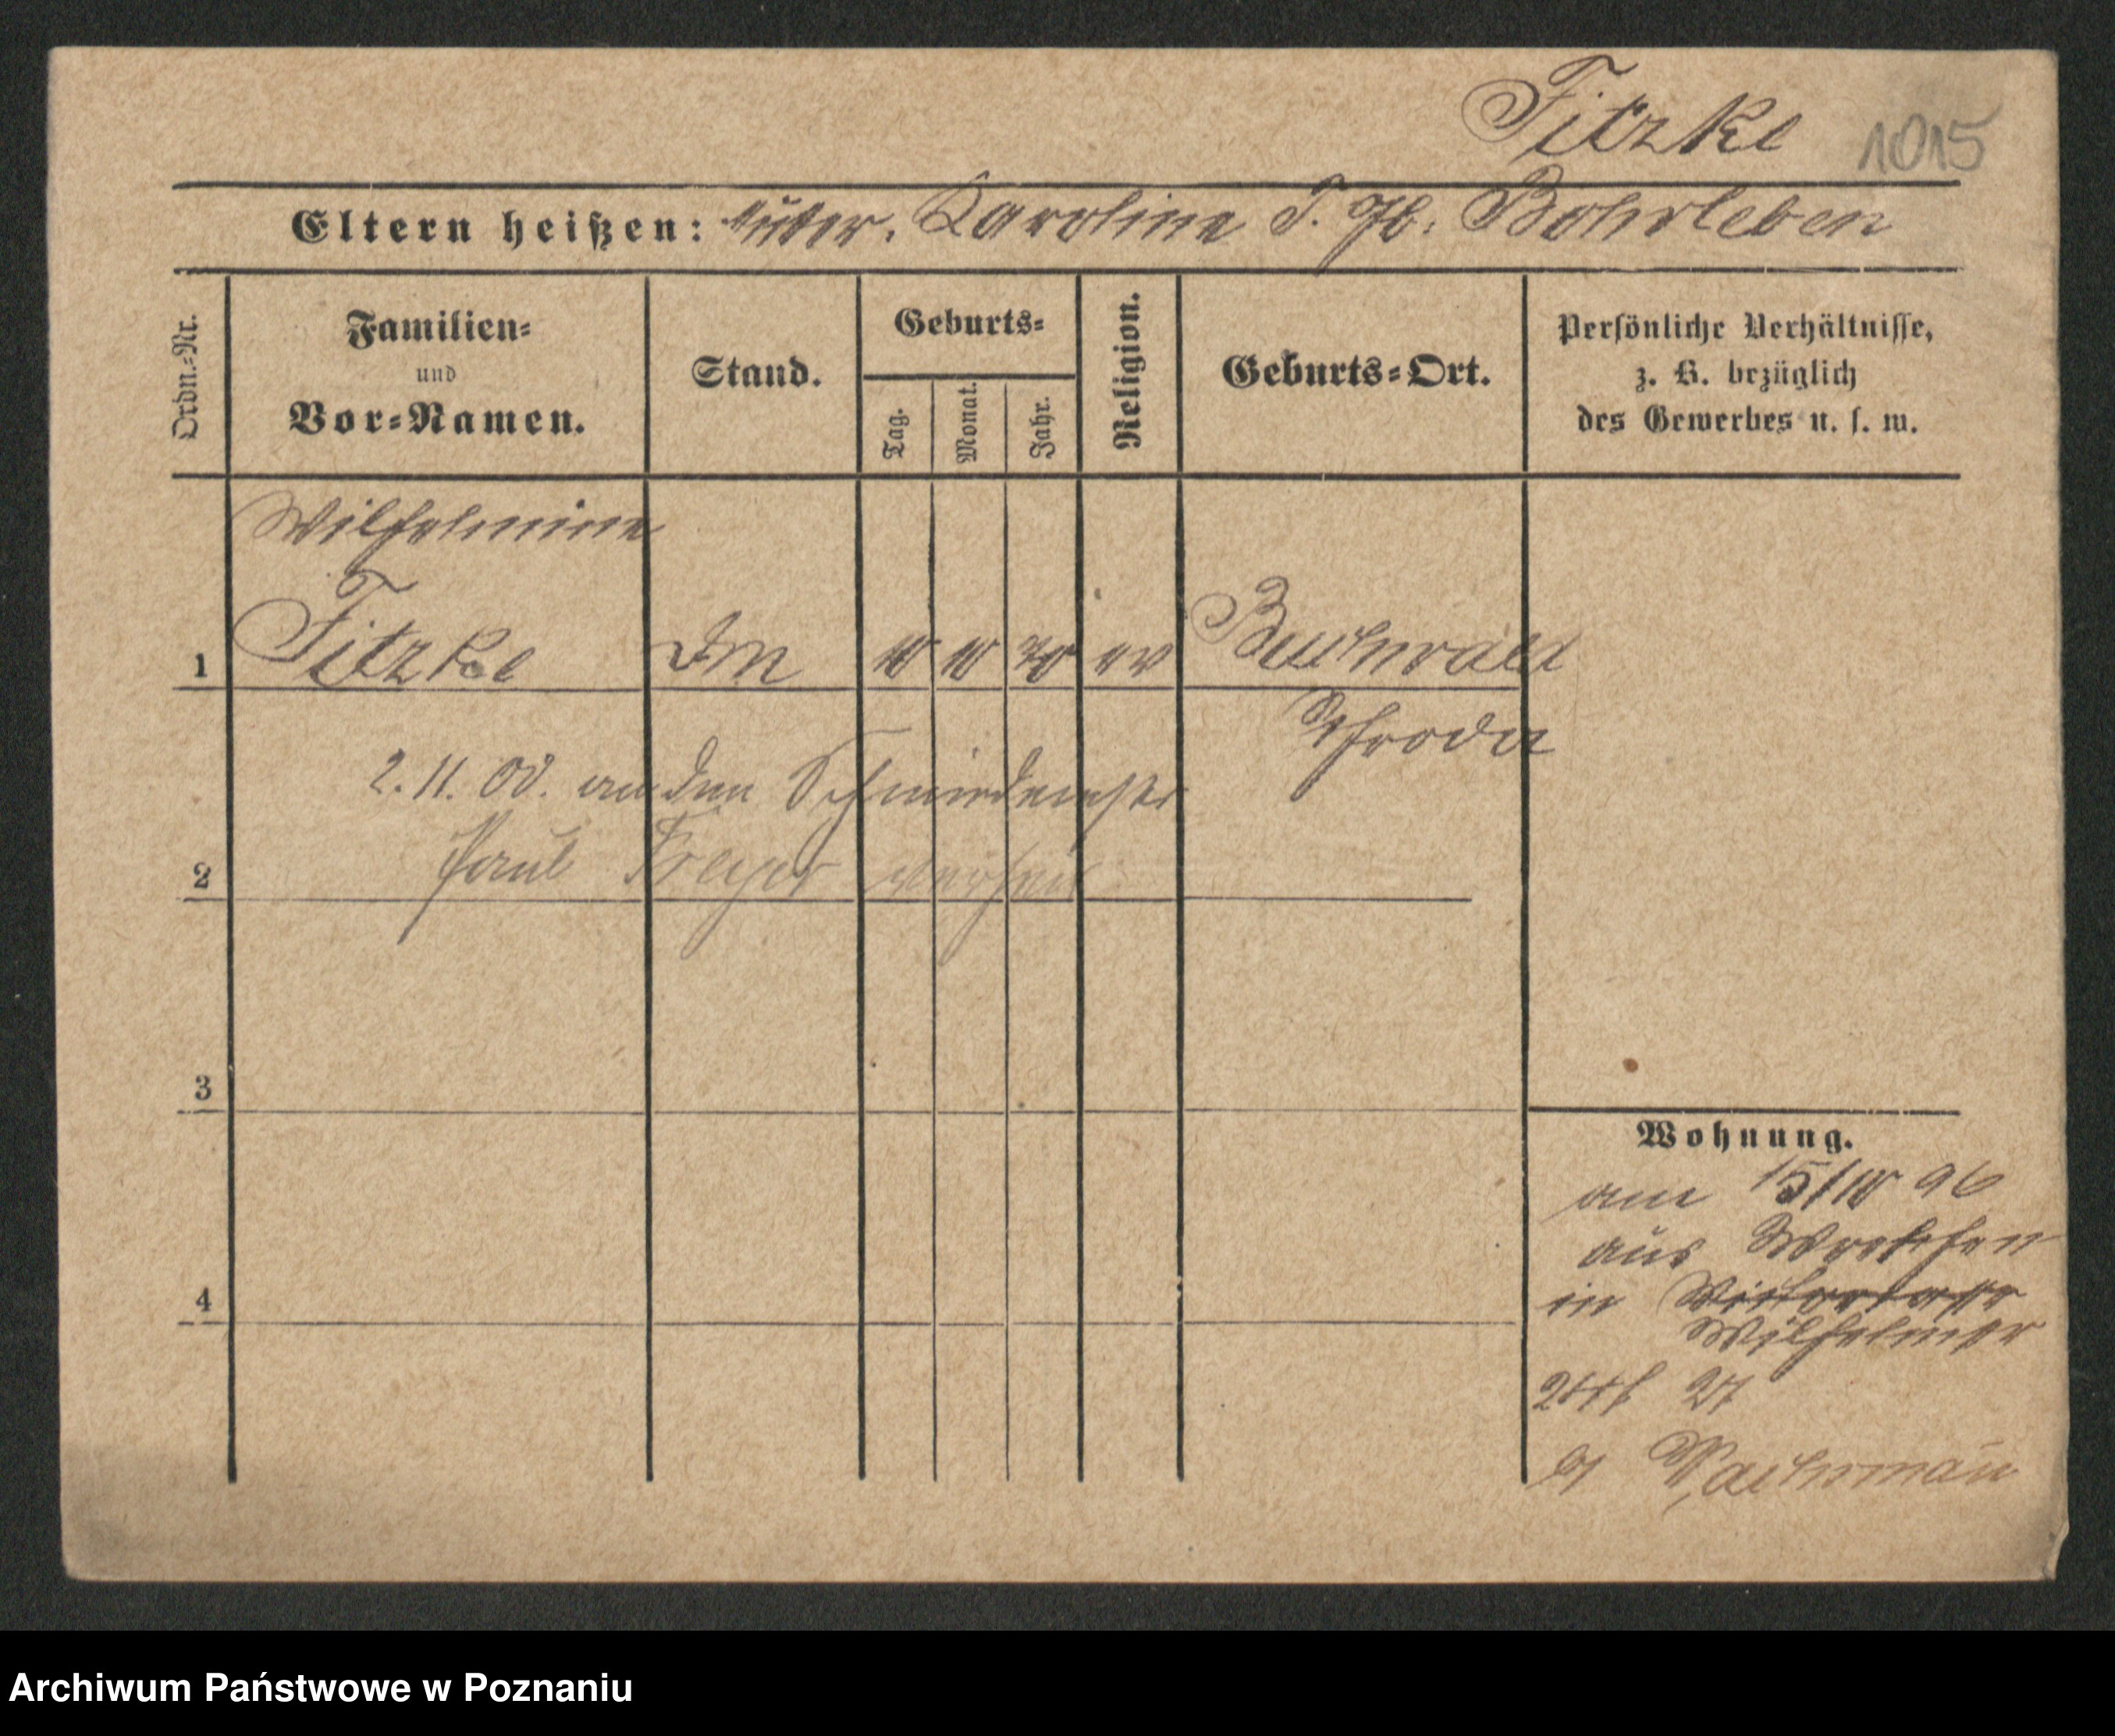 Fitzke 1015
Eltern heißen: Karoline F. Gb. Bohrleben
Ordn.-Nr.
Familien-
und
Vor-Namen.
Stand.
Geburts-
Tag.
Monat.
Jahr.
Religion.
Geburts-Ort.
Persönliche Verhältnisse,
z. B. bezüglich
des Gewerbes u. s. w.
Wilhelmine
1 Fitzke 10 10 70 ev Buchwald
Schroda
2.11.00. an den Schmiedemstr
2 Paul Freyer
3
4
Wohnung.
am 15/10 96
aus Wreschen
in Victoriastr
Wilhelmstr
27
Archiwum Państwowe w Poznaniu